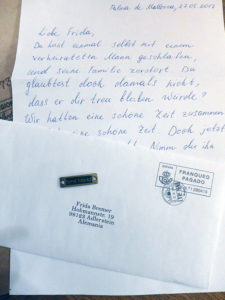 Palma de Mallorca, 27.05.2017
Liebe Frida,
Du hast einmal selbst mit einem
verheirateten Mann geschlafen
und seine Familie zerstört. Du
glaubtest doch damals nicht,
dass er dir treu bleiben würde?
Wir hatten eine schöne Zeit zusammen
eine schöne Zeit. Doch jetzt
Nimm die ihn
FRANQUEO
PAGADO
Frida Bremer
Hohmannstr. 19
98192 Adlerstein
Alemania